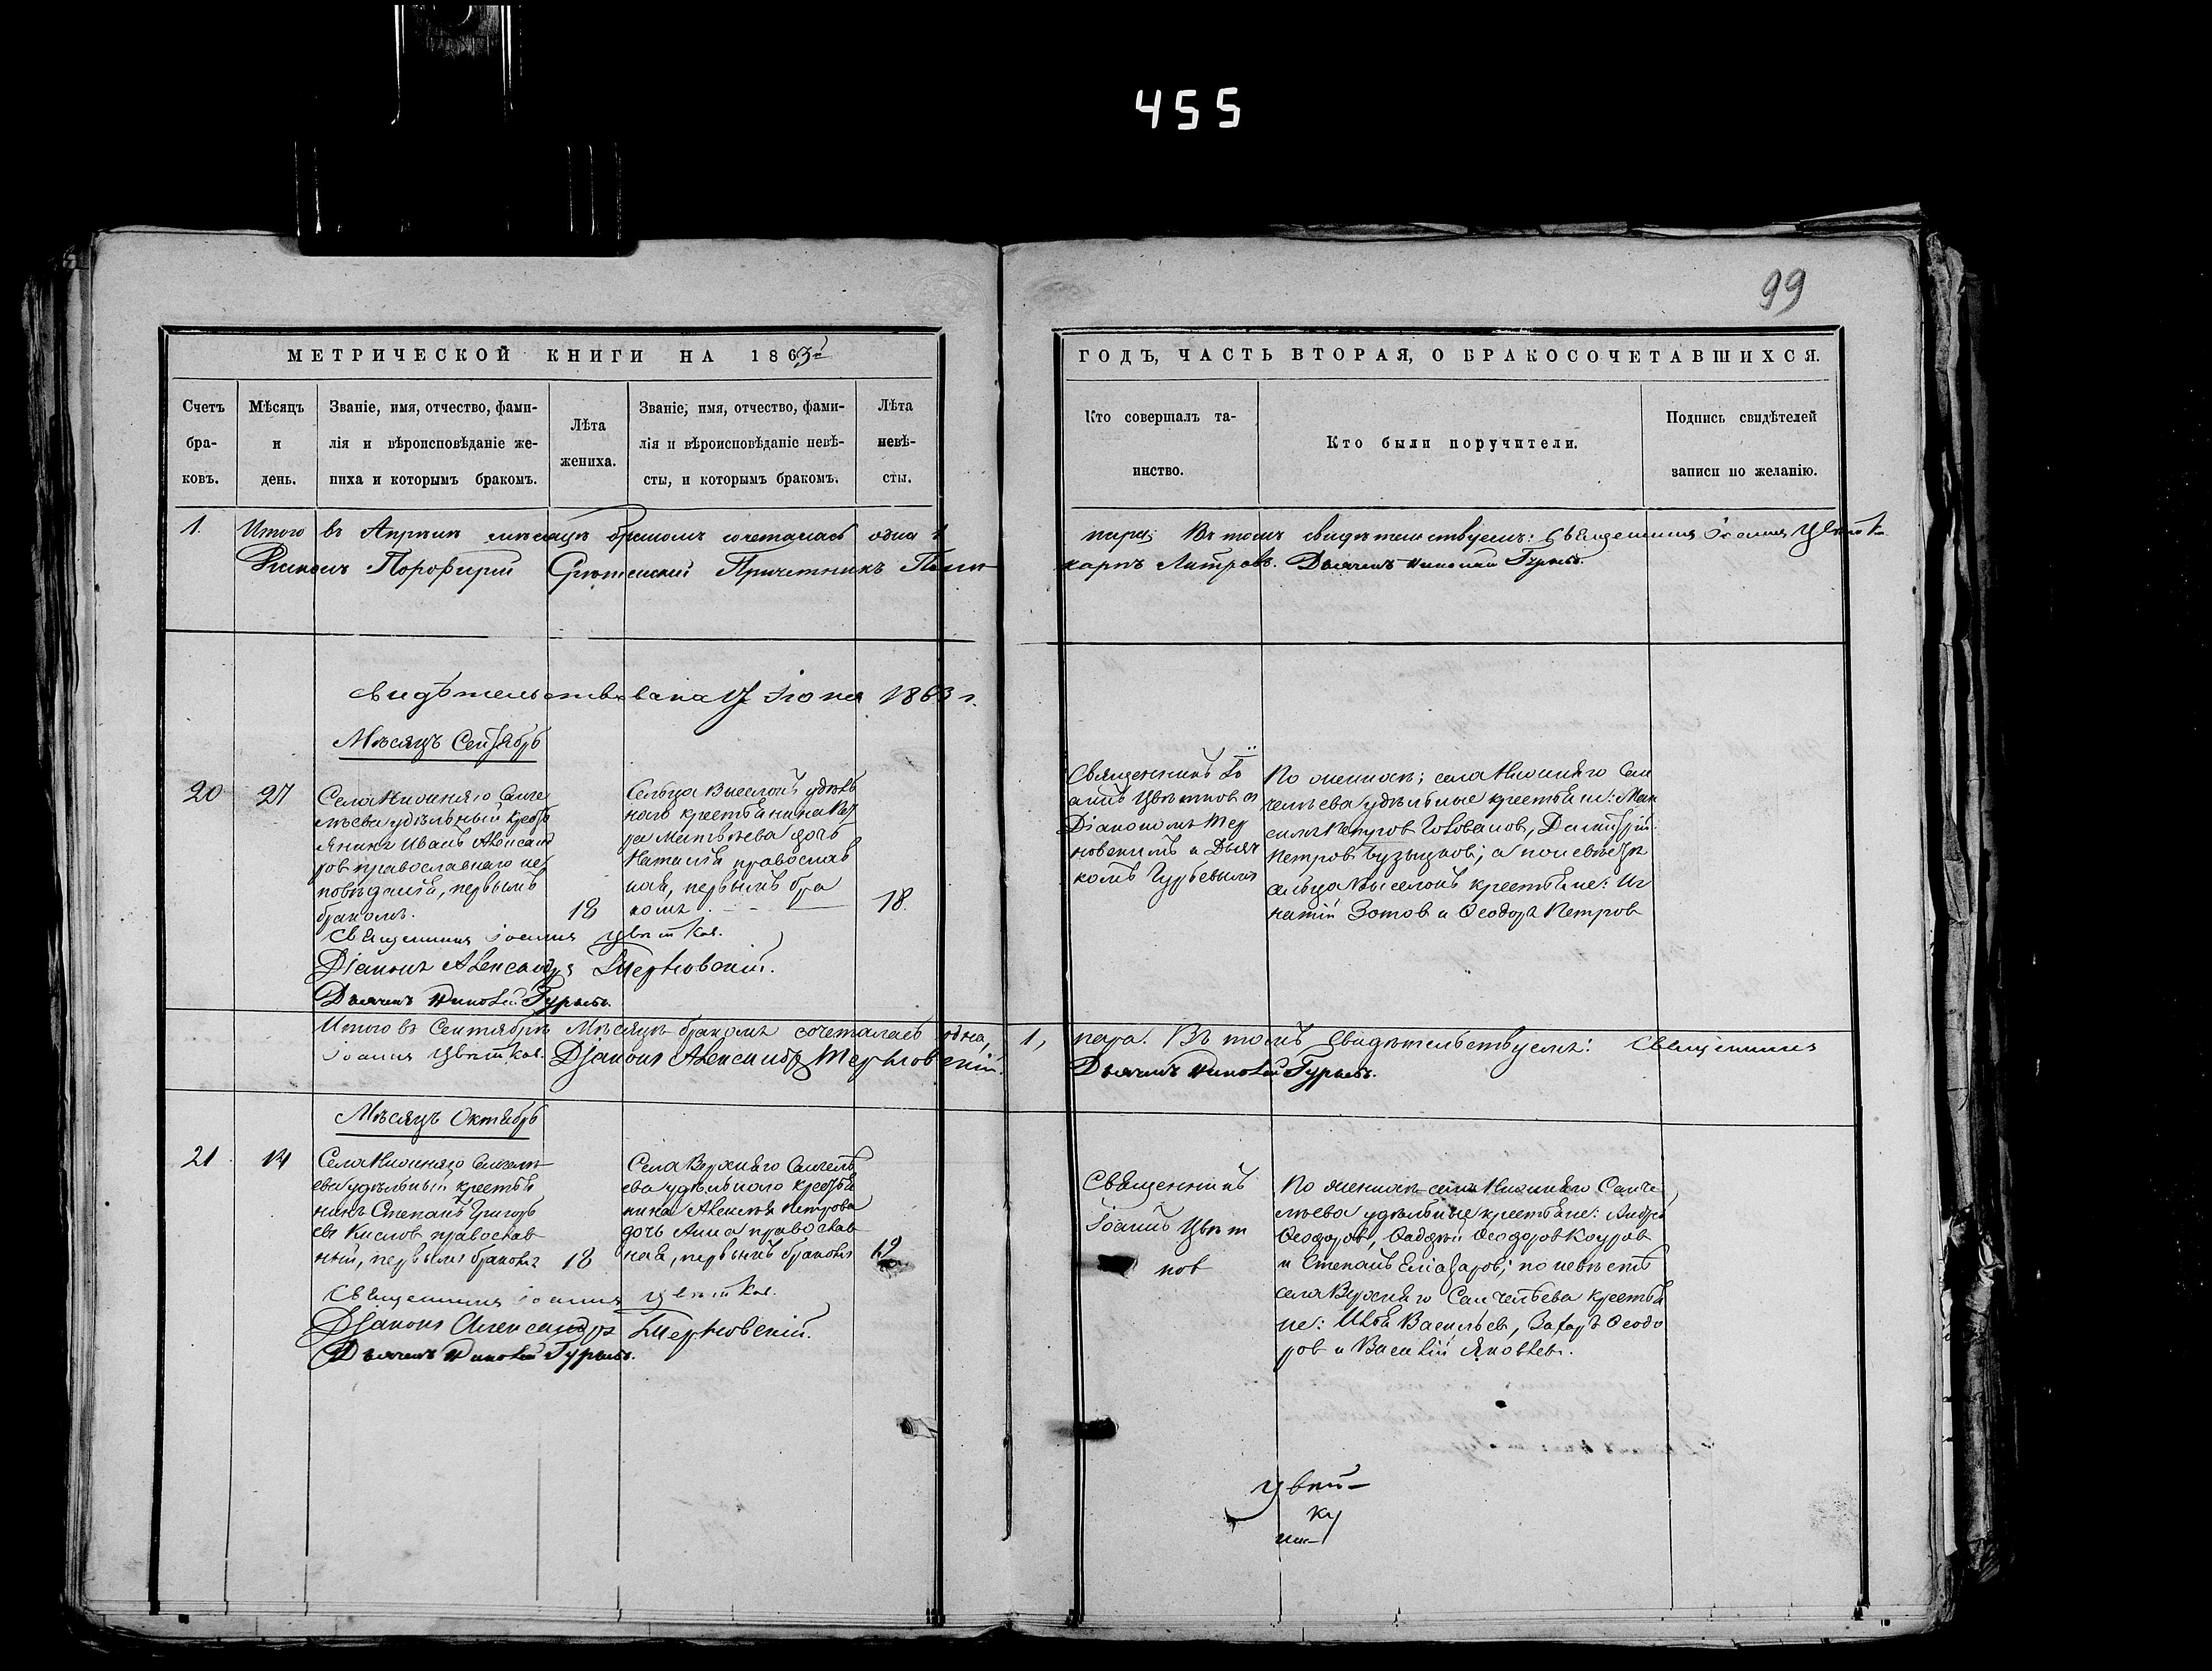 455
99
МЕТРИЧЕСКОЙ КНИГИ НА 1863й
ГОДЪ, ЧАСТЬ ВТОРАЯ, О БРАКОСОЧЕТАВШИХСЯ.
Счетъ бра-ковъ.
Мѣсяцъ и день.
Званіе, имя, отчество, фами-
лія и вѣроисповѣданіе же-
ниха и которымъ бракомъ.
Лѣта
жениха.
Званіе, имя, отчество, фами-
лія и вѣроисповѣданіе невѣ-
сты, и которымъ бракомъ.
Лѣта
невѣ-
сты.
Кто совершалъ та-
инство.
Кто были поручители.
Подпись свидѣтелей
записи по желанію.
1. Итого въ Апрѣлѣ мѣсяцѣ бракомъ сочеталась одна 1
пара; Въ томъ свидѣтельствуемъ: Священникъ Іоаннъ Цвѣтк
Порфирій Срѣтенскій Причетникъ Поли
карпъ Дьячекъ Николай Гурьевъ.
свидѣтельствована Іюня 1863 г.
Мѣсяцъ Сентябрь
20
27
Села Нижняго Санче
лѣева удѣльный кресть
янинъ Иванъ Александ
ровъ православнаго ис
повѣданія, первымъ
бракомъ.
18
Сельца Выселокъ удѣль
наго крестьянина
Матвѣева дочь
Наталія православ
ная, первымъ бра
комъ.
18.
Священникъ Іо
аннъ Цвѣтковъ съ
Діакономъ Тер
новскимъ и Дьяч
комъ Гурьевымъ
По женихѣ; села Нижняго Сан
челѣева удѣльные крестьяне: Мак
симъ Петровъ Головановъ, Димитрій
Петровъ Бузыцковъ; а по невѣстѣ
сельца Выселокъ крестьяне: Иг
натій Зотовъ и Ѳеодоръ Петровъ
Священникъ Іоаннъ Цвѣтковъ.
Діаконъ Александръ Терновскій.
Дьячекъ Николай Гурьевъ.
Итого въ Сентябрѣ Мѣсяцѣ бракомъ сочеталась одна,
1, пара. Въ томъ свидѣтельствуемъ: Священникъ
Іоаннъ Цвѣтковъ. Діаконъ Александръ Терновскій.
Дьячекъ Николай Гурьевъ.
Мѣсяцъ Октябрь
21
14
Села Нижняго Санчелѣ
ева удѣльный крестья
нинъ Степанъ Григорь
евъ Кисловъ православ
ный, первымъ бракомъ
18
Села Верхняго Санчелѣ
ева удѣльнаго крестья
нина Алексѣя Петрова
дочь Анна православ
ная, первымъ бракомъ
19
Священникъ
Іоаннъ Цвѣт
ковъ
По женихѣ села Нижняго Санче
лѣева удѣльные крестьяне: Андрей
Ѳеодоровъ, Ѳаддей Ѳеодоровъ Кауровъ
и Степанъ Еліазаровъ; по невѣстѣ
села Верхняго Санчелѣева крестья
не: Илья Васильевъ, Захаръ Ѳеодо
ровъ и Василій Яковлевъ.
Священникъ Іоаннъ Цвѣтковъ.
Діаконъ Александръ Терновскій.
Дьячекъ Николай Гурьевъ.